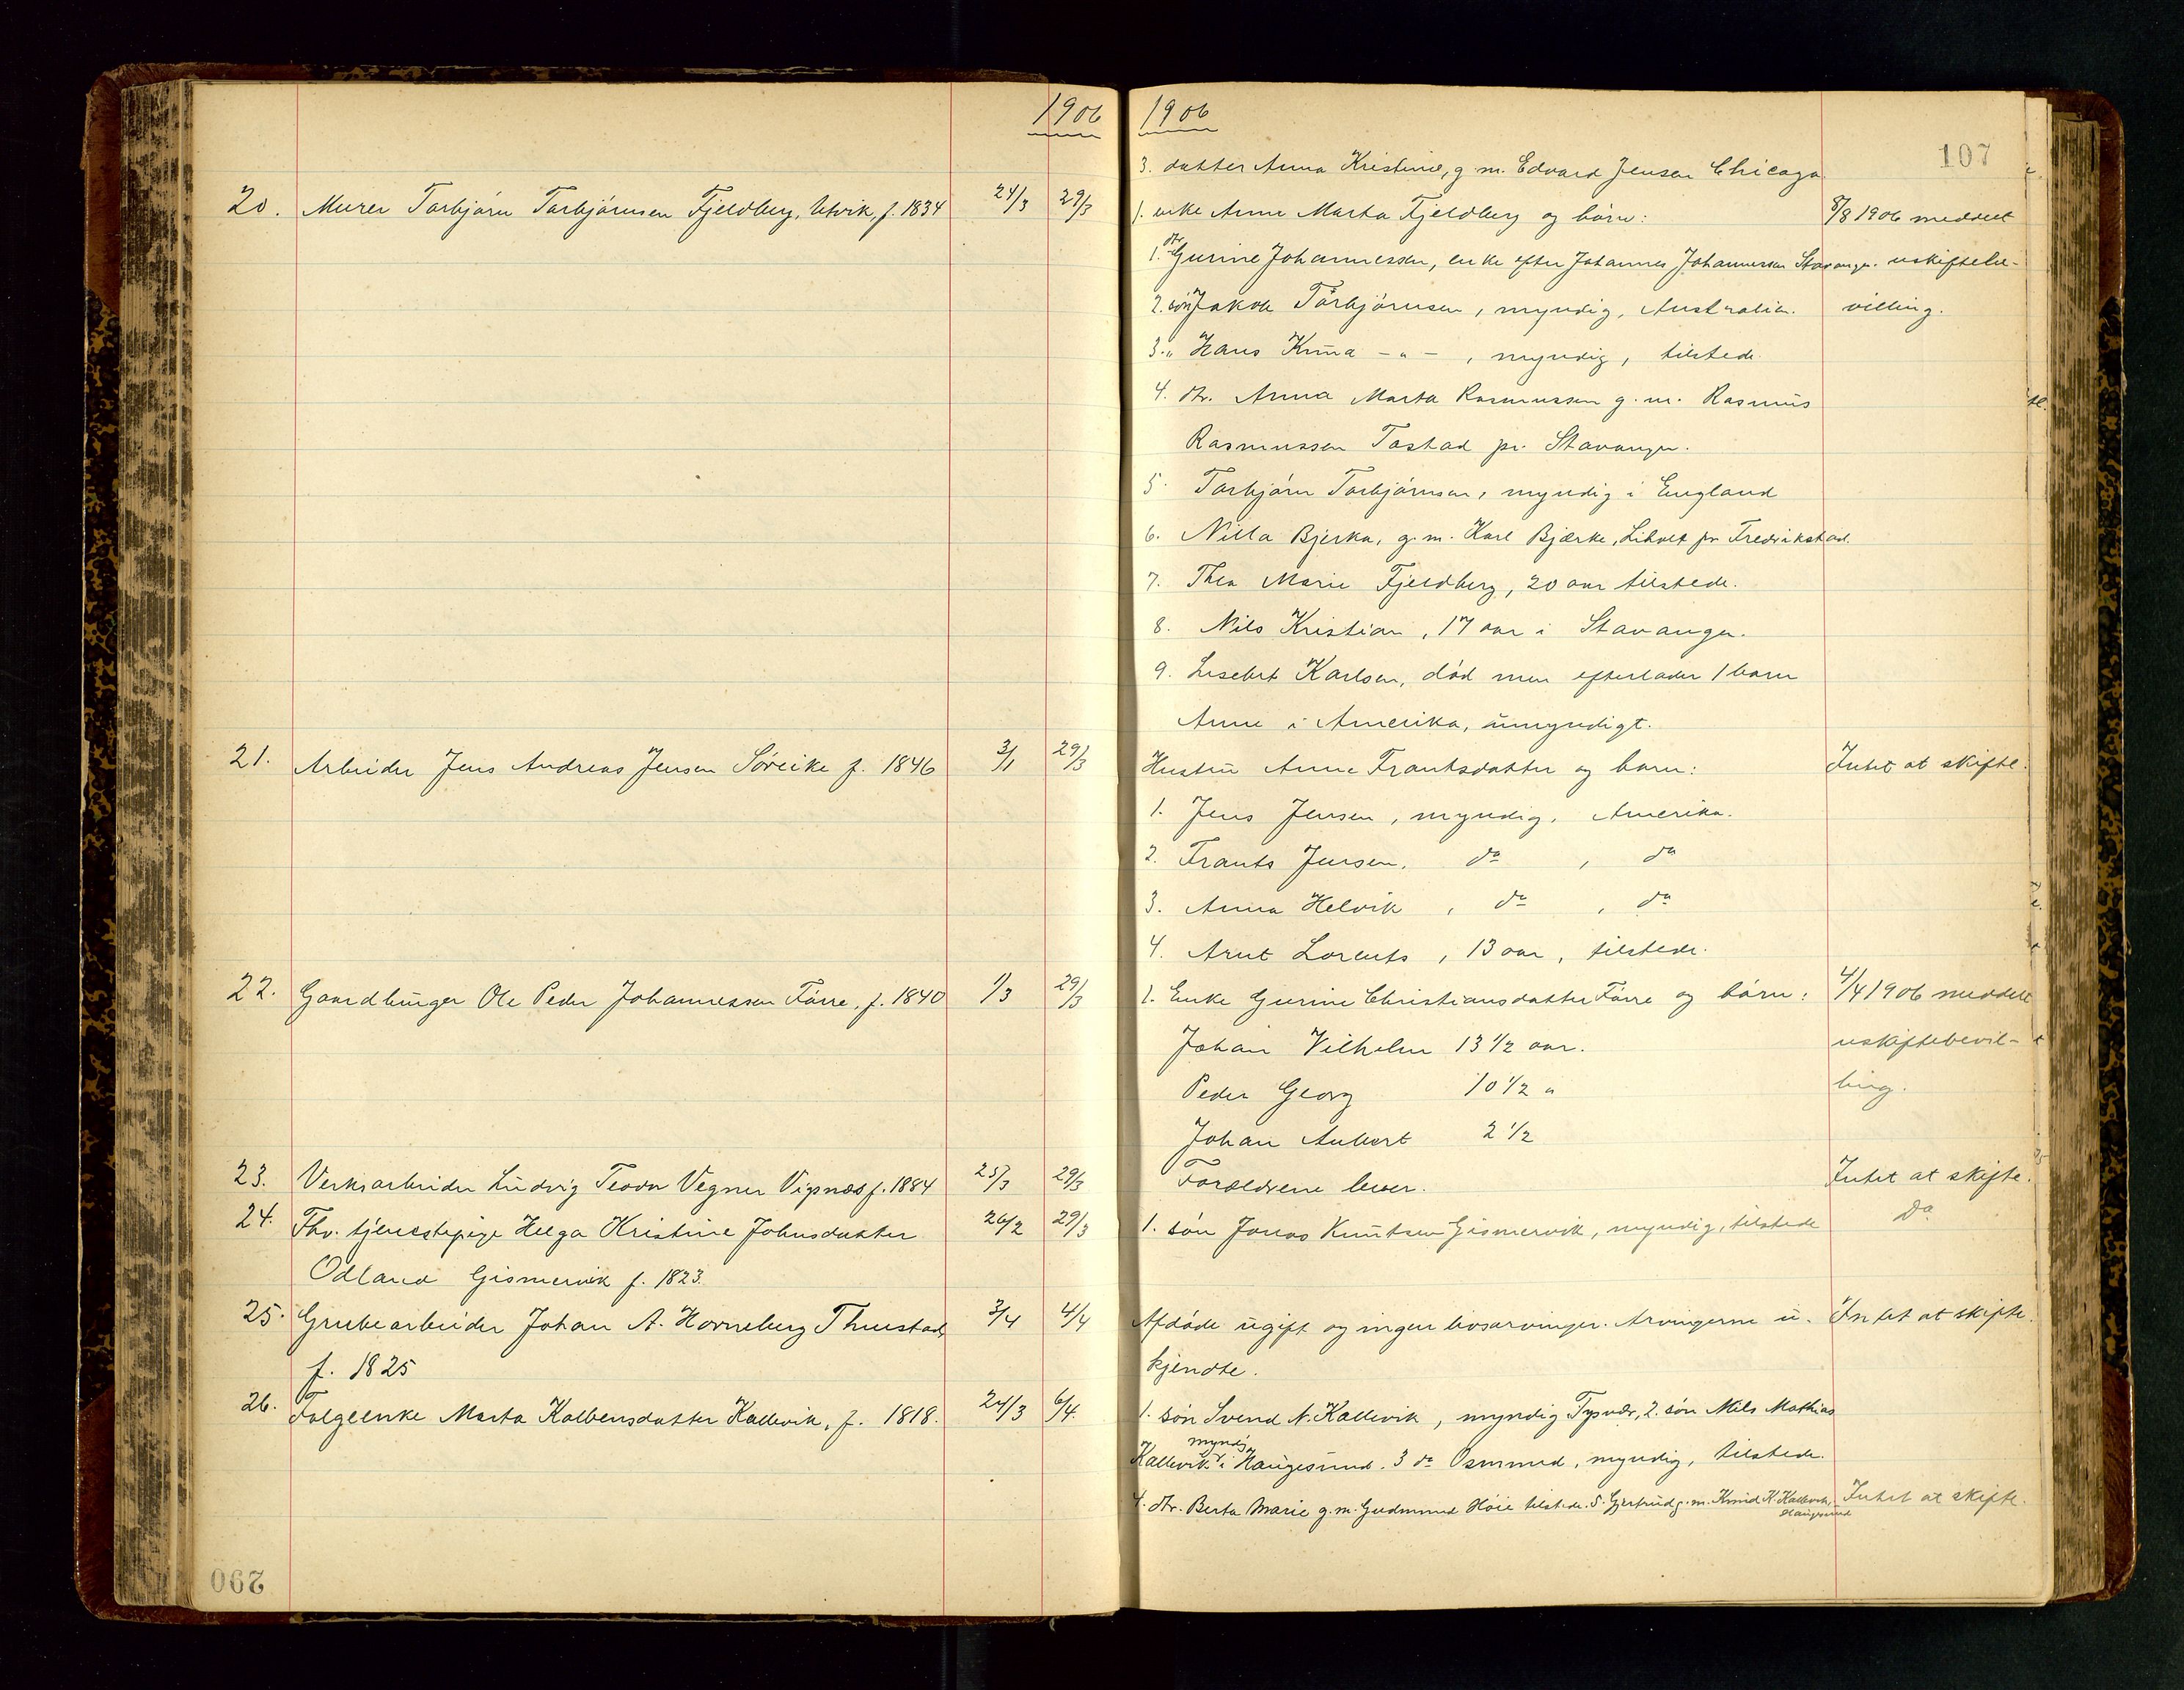 1906
20. Murer Torbjørn Torbjørnsen Fjeldberg, Utvik, f. 1834 24/3 29/3
21. Arbeider Jens Andreas Jensen Sørvike f. 1846 3/1 29/3
22. Gaardbruger Ole Peder Johannessen Førre, f. 1840 1/3 29/3
23. Verksarbeider Ludvig Teodor Vegner Vipnæs f. 1884 25/3 29/3
24. Fhv. tjenestepige Helga Kristine Johnsdatter 26/2 29/3
Odland Gismervik f. 1823.
25. Grubearbeider Johan A. Horneberg Thuestad 3/4 4/4
f. 1825
26. Folgeenke Marta Kolbensdatter Kallevik, f. 1818. 24/3 6/4.
290
1906
107
3. datter Anna Kristine, g. m. Edvard Jensen Chicago.
1. enke Anne Marta Fjeldberg og børn: 8/8 1906 meddelt
1. dtr. Gurine Johannessen, enke efter Johannes Johannessen Stavanger. uskiftebe-
2. søn Jakob Torbjørnsen, myndig, Australien. villing.
3. " Hans Knud - " - , myndig, tilstede.
4. dtr. Anna Marta Rasmussen g. m. Rasmus
Rasmussen Tastad pr. Stavanger.
5. Torbjørn Torbjørnsen, myndig i England
6. Nilla Bjerka, g. m. Karl Bjærke, Liholt pr Fredrikstad.
7. Thea Marie Fjeldberg, 20 aar tilstede.
8. Nils Kristian, 17 aar i Stavanger.
9. Lisebet Karlsen, død men efterlader 1 barn
Anne i Amerika, umyndigt.
Hustru Anne Frantsdatter og barn: Intet at skifte.
1. Jens Jensen, myndig, Amerika.
2. Frants Jensen, do , do
3. Anna Helvik , do , do
4. Arnt Lorents , 13 aar, tilstede.
1. Enke Gurine Christiansdatter Førre og børn: 4/4 1906 meddelt
Johan Vilhelm 13 1/2 aar. uskiftebevil-
Peder Georg 10 1/2 " ling.
Johan Aubert 2 1/2
Forældrene lever. Intet at skifte.
1. søn Jonas Knutsen Gismervik, myndig, tilstede do
Afdøde ugift og ingen livsarvinger. Arvingerne u- Intet at skifte.
kjendte.
1. søn Svend N. Kallevik, myndig Tysvær, 2. søn Nils Mathias
Kallevik myndig i Haugesund. 3 do Osmund, myndig, tilstede.
4. dtr. Berta Marie g. m. Gudmund Høie tilstede. 5. Gjertrud g. m. Knud K. Kallevik, Haugesund Intet at skifte.